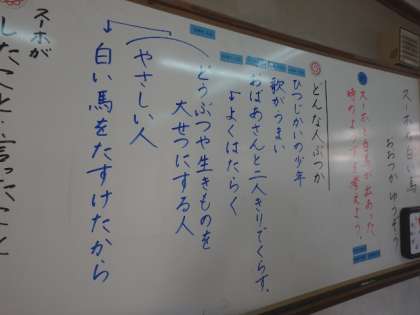 スーホの白い馬
おおつか ゆうぞう
スーホと白馬が出あった
時のようすを考えよう。
どんな人ぶつか
ひつじかいの少年
歌がうまい
おばあさんと二人きりでくらす。
↓よくはたらく
どうぶつや生きものを
大せつにする人
やさしい人
白い馬をたすけたから
スーホが
したこと・言ったこと